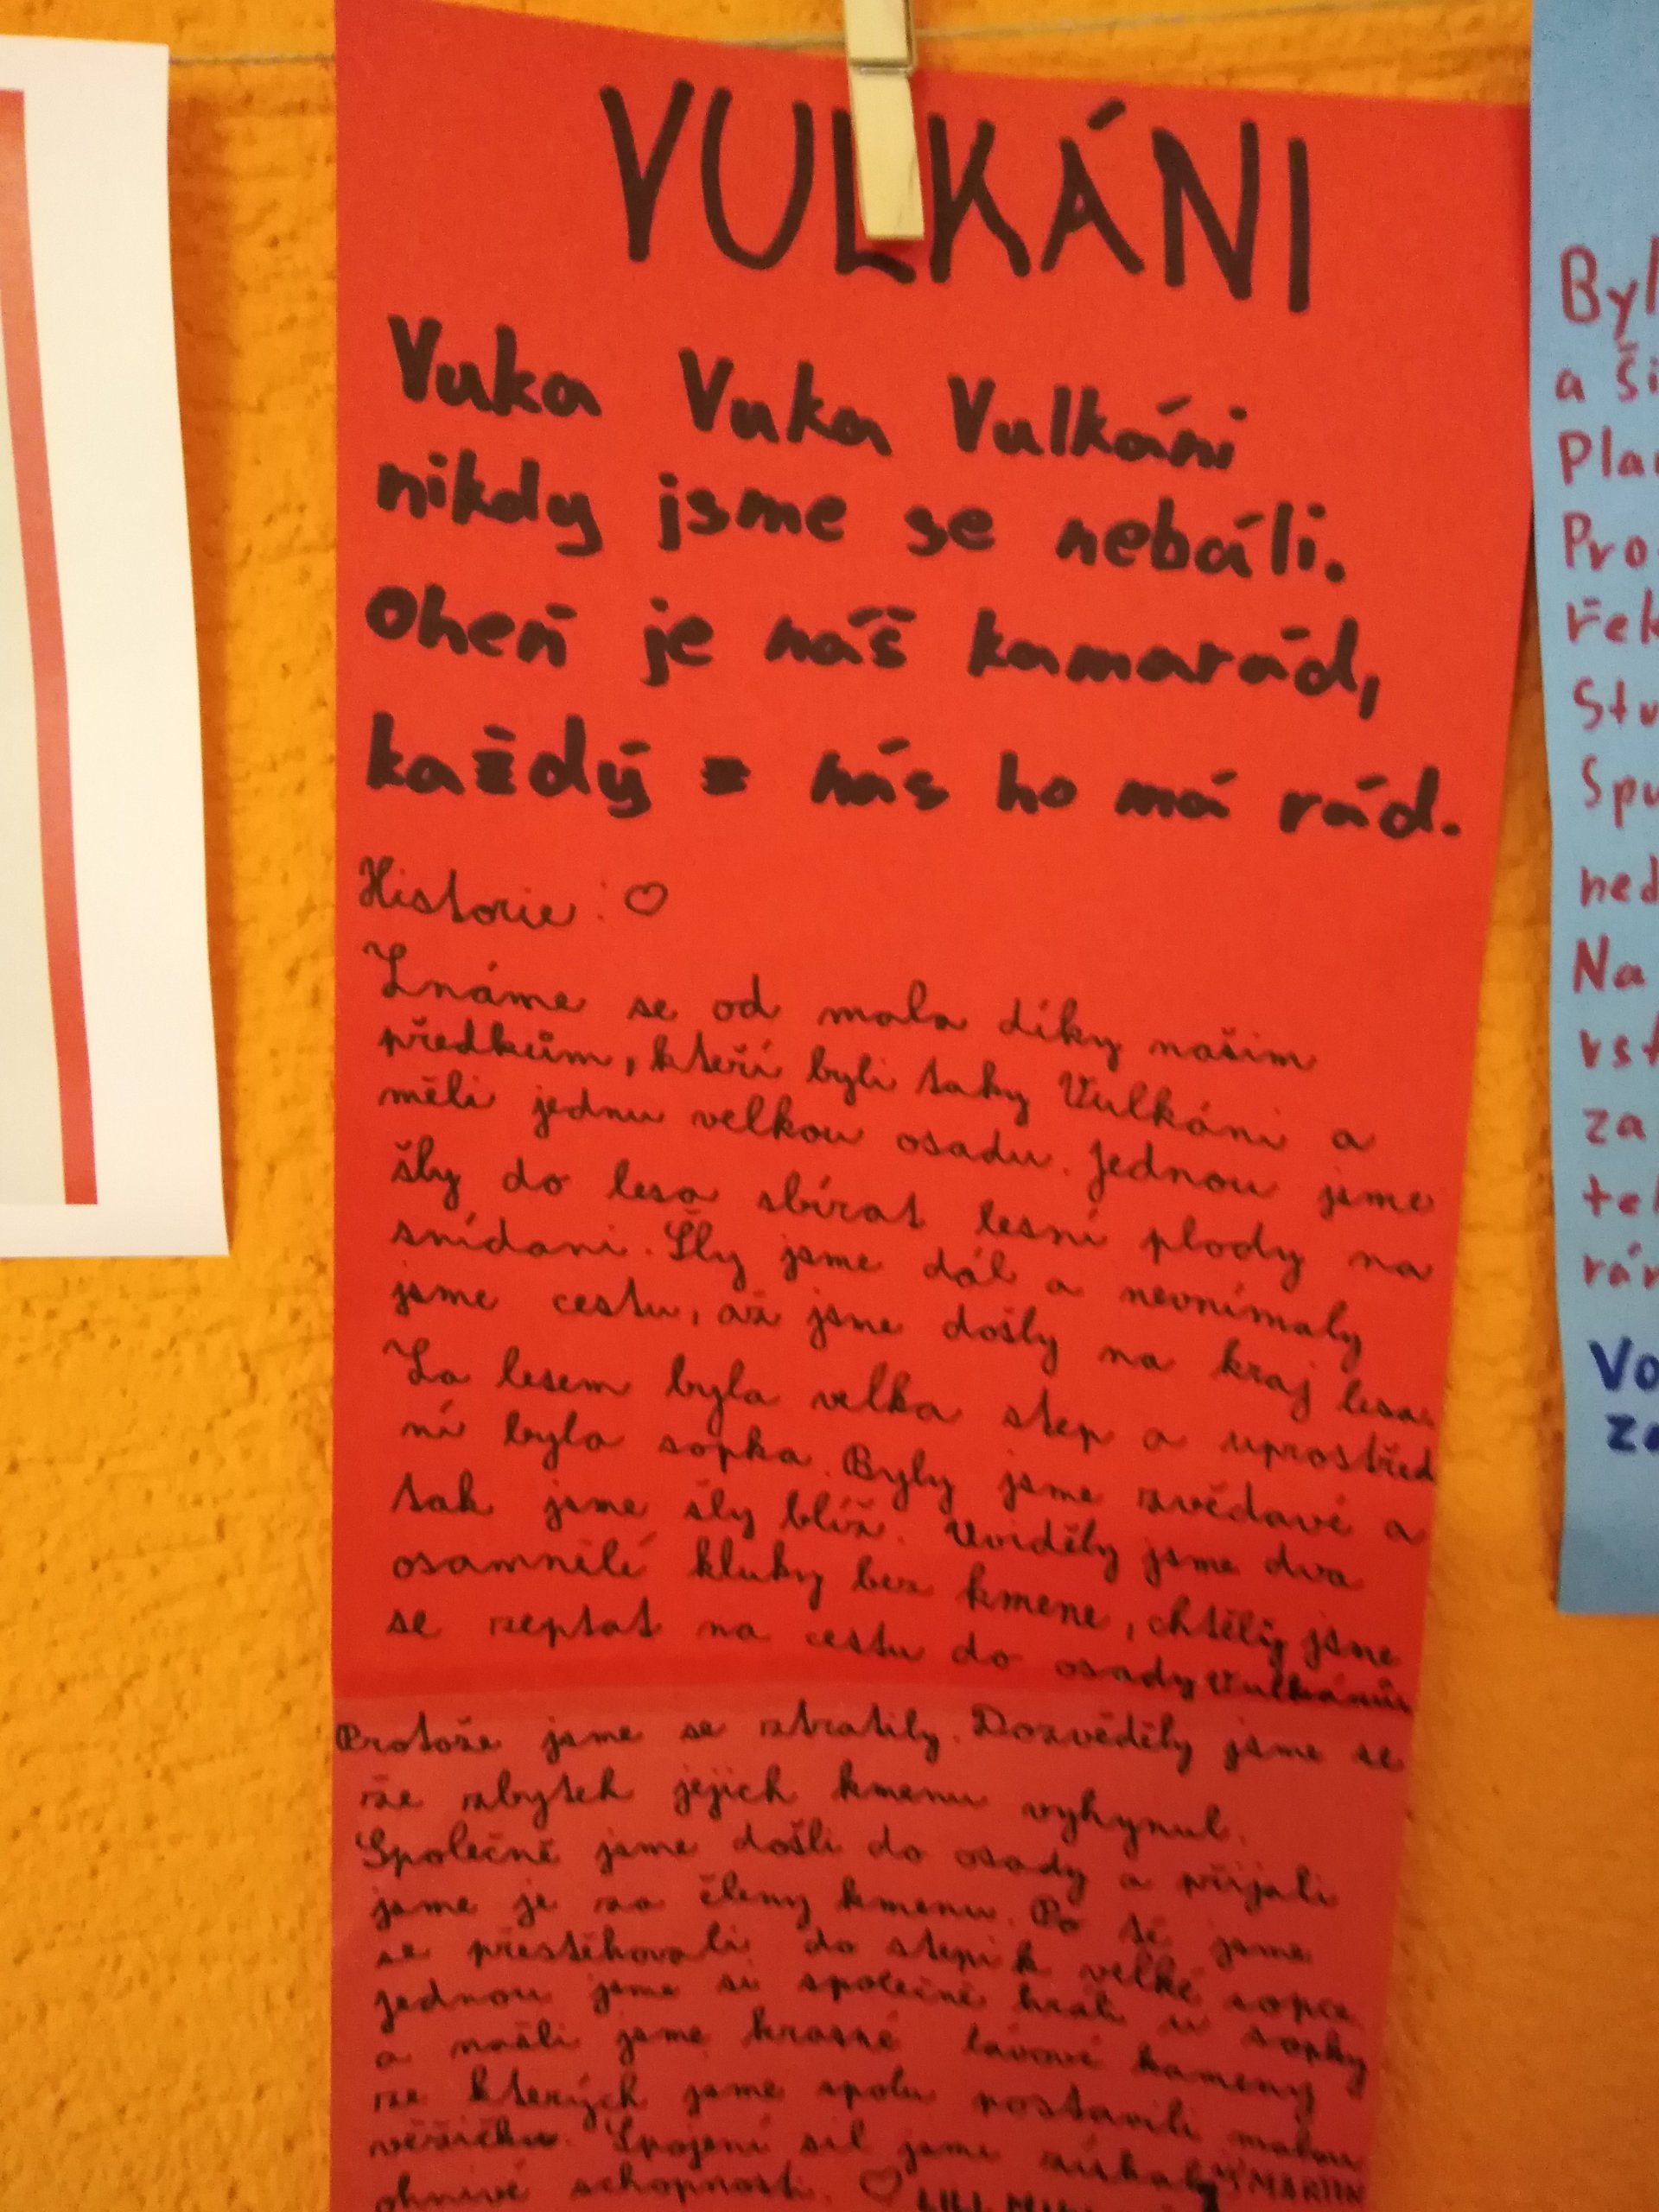 VULKÁNI
Vuka Vuka Vulkáni
nikdy jsme se nebáli.
Oheň je náš kamarád,
každý z nás ho má rád.
Historie: ♡
Známe se od mala díky našim
předkům, kteří byli taky Vulkáni a
měli jednu velkou osadu. Jednou jsme
šly do lesa sbírat lesní plody na
snídani. Šly jsme dál a nevnímaly
jsme cestu, až jsme došly na kraj lesa.
Za lesem byla velka step a uprostřed
ní byla sopka. Byly jsme zvědavé a
tak jsme šly blíž. Uviděly jsme dva
osamnělí kluky bez kmene, chtěly jsme
se zeptat na cestu do osady Vulkánů.
Protože jsme se ztratily. Dozvěděly jsme se
že zbytek jejich kmenu vyhynul.
Společně jsme došli do osady a přijali
jsme je za členy kmenu. Po té jsme
se přestěhovali do stepi k velké sopce
jednou jsme si společně hrali u sopky
a našli jsme krasné lávové kameny
ze kterých jsme spolu postavili malou
věžičku. Spojení sil jsme získaly
ohnivé schopnosti. ♡
MARTIN
LILI
Byl
a ši
Pla
Pro
řek
Stv
Spu
ned
Na
vst
za
tel
rán
Vo
za